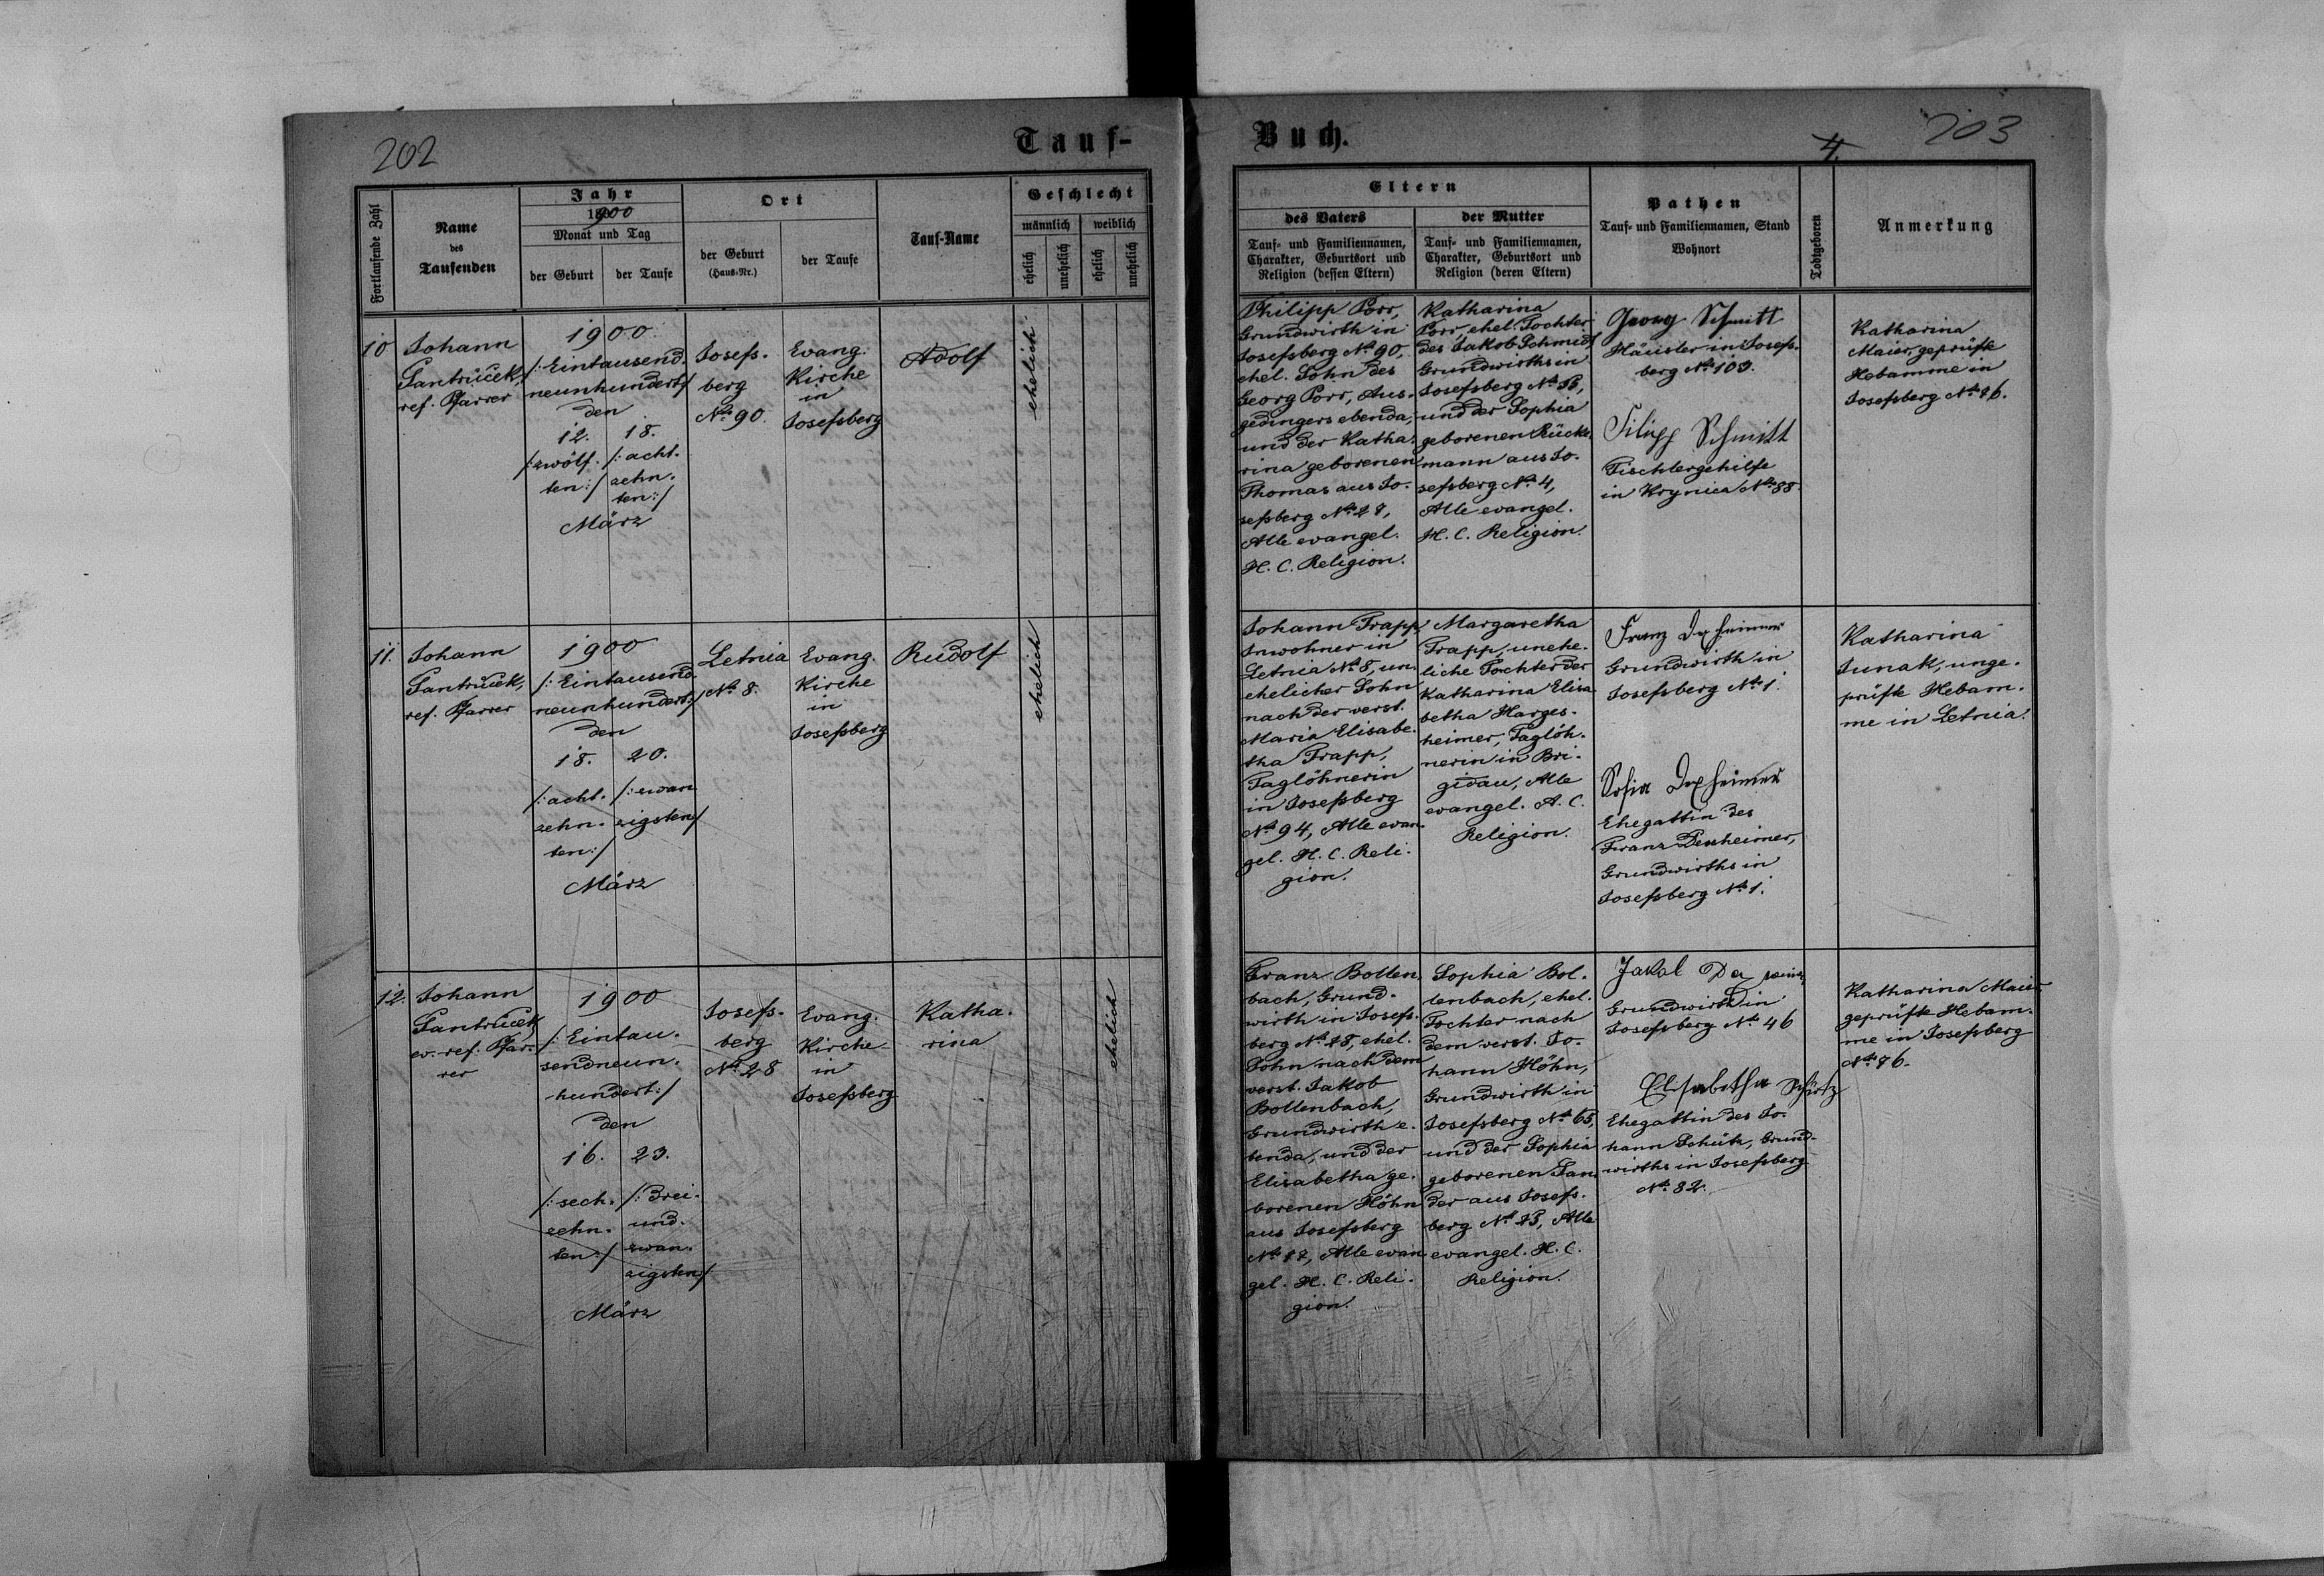 202
Tauf-
Fortlaufende Zahl
Name
des
Taufenden
Jahr
1900
Monat und Tag
der Geburt
der Taufe
Ort
der Geburt
(Haus-Nr.)
der Taufe
Tauf-Name
Geschlecht
männlich
weiblich
ehelich
unehelich
ehelich
unehelich
10
Johann
Pfarrer
ref.
1900
/:Eintausend
neunhundert:/
den
12. 18.
/:zwölf- /:acht-
ten:/ zehn-
ten:/
März
Josefs-
berg
No 90.
Evang.
Kirche
in
Josefsberg
Adolf
ehelich
11.
Johann
ref. Pfarrer
1900
/:Eintausend
neunhundert:/
den
18. 20.
/:acht- /:zwan
zehn- zigsten/
ten:/
März
Letnia
No 8.
Evang.
Kirche
in
Josefsberg
Rudolf
ehelich
12.
Johann
ev. ref. Pfar-
rer
1900
/:Eintau-
sendneun-
hundert:/
den
16. 23.
/:sech- /:drei-
zehn- und-
ten:/ zwan-
zigsten/
März
Josefs-
berg
No 28
Evang.
Kirche
in
Josefsberg
Katha-
rina
ehelich
Buch.
4.
203
Eltern
des Vaters
Tauf- und Familiennamen,
Charakter, Geburtsort und
Religion (dessen Eltern)
der Mutter
Tauf- und Familiennamen,
Charakter, Geburtsort und
Religion (deren Eltern)
Pathen
Tauf- und Familiennamen, Stand
Wohnort
Todtgeboren
Anmerkung
Philipp Porr,
Grundwirth in
Josefsberg No 90,
ehel. Sohn des
Georg Porr, Aus-
gedingers ebenda,
und der Katha-
rina geborenen
Thomas aus Jo-
sefsberg No
Alle evangel.
H. C. Religion.
Katharina
Porr, ehel. Tochter
des Jakob Schmid,
Grundwirths in
Josefsberg No
und der Sophia
geborenen Rücke-
mann aus Jo-
sefsberg No 4,
Alle evangel.
H. C. Religion.
Georg Schmitt
Häusler in Josefs-
berg No 103.
Filipp Schmitt
Tischlergehilfe
in Krynica No 88.
Katharina
Maier, geprüfte
Hebamme in
Josefsberg No 76.
Johann Trapp,
Inwohner in
Letnia No 8, un-
ehelicher Sohn
nach der verst.
Maria Elisabe-
tha Trapp,
Taglöhnerin
in Josefsberg
No 94, Alle evan-
gel. H. C. Reli-
gion.
Margaretha
Trapp, unehe-
liche Tochter der
Katharina Elisa
betha Harges-
heimer, Taglöh-
nerin in Bri-
gidau, Alle
evangel. A. C.
Religion.
Franz Dexheimer
Grundwirth in
Josefsberg No 1.
Sofia Dexheimer
Ehegattin des
Franz Dexheimer,
Grundwirths in
Josefsberg No 1.
Katharina
Junak, unge-
prüfte Hebam-
me in Letnia.
Franz Bollen-
bach, Grund-
wirth in Josefs-
berg No 28, ehel.
Sohn nach dem
verst. Jakob
Bollenbach,
Grundwirth e-
benda, und der
Elisabetha ge-
borenen Höhn
aus Josefsberg
No Alle evan
gel. H. C. Reli-
gion.
Sophia Bol-
lenbach, ehel.
Tochter nach
dem verst. Jo-
hann Höhn,
Grundwirth in
Josefsberg No 65,
und der Sophia
geborenen San
der aus Josefs-
berg No Alle
evangel. H. C.
Religion.
Jakob
Grundwirth in
Josefsberg No 46
Elisabetha Schütz
Ehegattin des Jo-
hann Schütz, Grund-
wirths in Josefsberg
No 82.
Katharina Maier,
geprüfte Hebam-
me in Josefsberg
No 76.